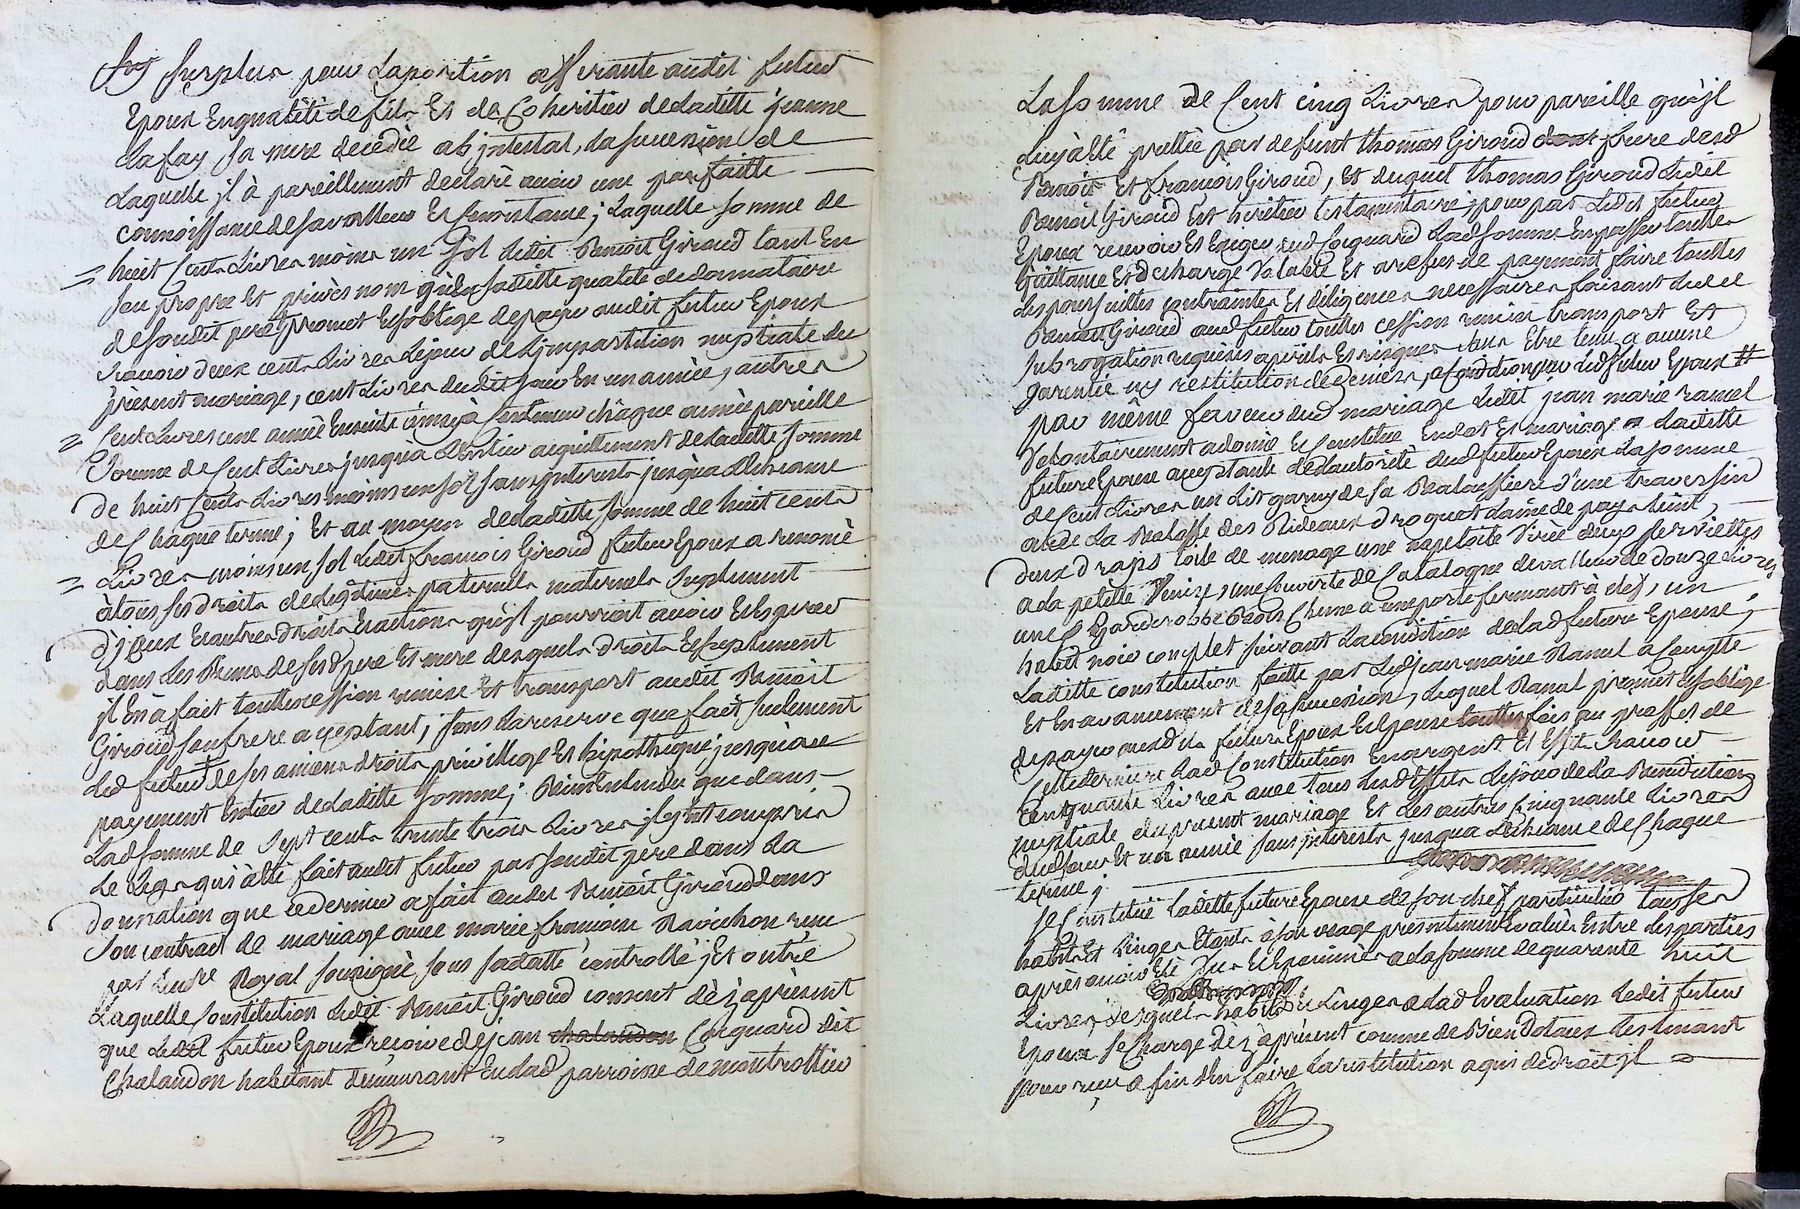 surplus pour la portion afferante audit futur
Epoux En qualité de fils Et de Coheritier de laditte jeanne
Lafay sa mere decedée ab intestat, la succession de
Laquelle jl à pareillement declaré avoir une parfaitte
connoissance de sa valleur Et Consistance; Laquelle somme de
huit Cents Livres moins un sol Ledit Benoit Giroud tant En
son propre Et privés nom qu'En saditte qualité de donnataire
de soudit pere promet Et s'oblige de payer audit futur Epoux
scavoir deux cents Livres Le jour de L'jmpartition nuptiale du
présent mariage, cent Livres dudit jour En un année, autres
Cent Livres une année Ensuitte ainsy à Continuer châque année pareille
somme de Cent Livres jusqu'à L'Entier acquittement de laditte somme
de huit Cents Livres moins un sol sans jnterests jusqu'à L'Echéance
de Chaque terme; Et au moyen de laditte somme de huit cents
Livres moins un sol Ledit François Giroud futur Epoux a renoncé
à tous ses droits de légitimes paternels maternels Supplement
d'jceux Et autres droits Et actions qu'jl pourroit avoir Et Esperer
dans Les Biens de sesd pere Et mere desquels droits Et Supplement
jl En à fait toutte cession remise Et transport audit Benoit
Giroud son frere acceptant; sous la reserve que fait seulement
Led futur de ses anciens droits privillege Et hipotheque jusqu'au
payement Entier de laditte somme; Bien Entendu que dans
Lad somme de Sept cents trente trois Livres jl y Est compris
Le Legs qui à Eté fait audit futur par soudit pere dans La
donnation que ce dernier a fait audit Benoit Giroud dans
son contract de mariage avec marie françoise Ravichon reçu
par Le no.re Royal soussigné, sous sa datte controllé; Et outre
Laquelle Constitution Ledit Benoit Giroud consent dès à présent
que Ledit futur Epoux reçoive de jean chalandon Coquard dit
Chalandon habitant demeurant En lad parroisse de montrottier
La somme de Cent cinq Livres pour pareille qu'jl
luy à Eté prettée par defunt thomas Giroud dont frere desd
Benoit Et François Giroud, Et duquel thomas Giroud Ledit
Benoit Giroud Est héritier testamentaire; pour par Ledit futur
Epoux recevoir Et Exiger dud Coquard Lad somme En passer toutte
quittance Et decharge Valable Et a refus de payement faire touttes
Les poursuittes contraintes Et diligences necessaires faisant Ledit
Benoit Giroud aud futur touttes cession remise transport Et
subrogation requises a périls Et risques sans Etre tenu a aucune
garentie ny restitution de deniers, a Condition par led futur Epoux #
par même faveur dud mariage Ledit jean marie ramel
Volontairement a donné Et Constitué En dot Et mariage a laditte
future Epouse acceptante de L'autorité dud futur Epoux La somme
de Cent Livres un Lit garny de sa d'une traversin
de La Balasse des Rideaux droguet Laine de pays teint,
deux draps toile de menage une nappe deux serviettes
a la petitte Venize, une Couverte de Catalogne de valleur de douze Livres
une Garderobbe Bois Chene a une porte fermant à clef, un
habit noir complet suivant La condition de lad future Epouse,
Laditte constitution faitte par Led jean marie Ramel à Compte
Et En avancement de sa succession, Lequel Ramel promet Et s'oblige
de payer auxd futurs Epoux Et Epouse touttes fois au proffit de
Cette derniere Lad Constitution En argent Et Effets scavoir
Cinquante Livres avec tous Lesd Effets Le jour de La Benediction
nuptiale du present mariage Et Les autres Cinquante Livres
dud jour En un année sans jnterests jusqua L'Echéance de Chaque
terme;
Se Constitue Laditte future Epouse de son chef particulier tous ses
habits Et Linges Etants à son usage présentement Evalués Entre Les parties
après avoir Eté Vus Et Examinés a La somme de quarente huit
Livres, desquels habits Et Linges a Lad Evaluation Ledit futur
Epoux se Charge dès à présent comme de Bien Dotaux Les tenant
pour reçu a fin d'En faire La restitution a qui de droit jl